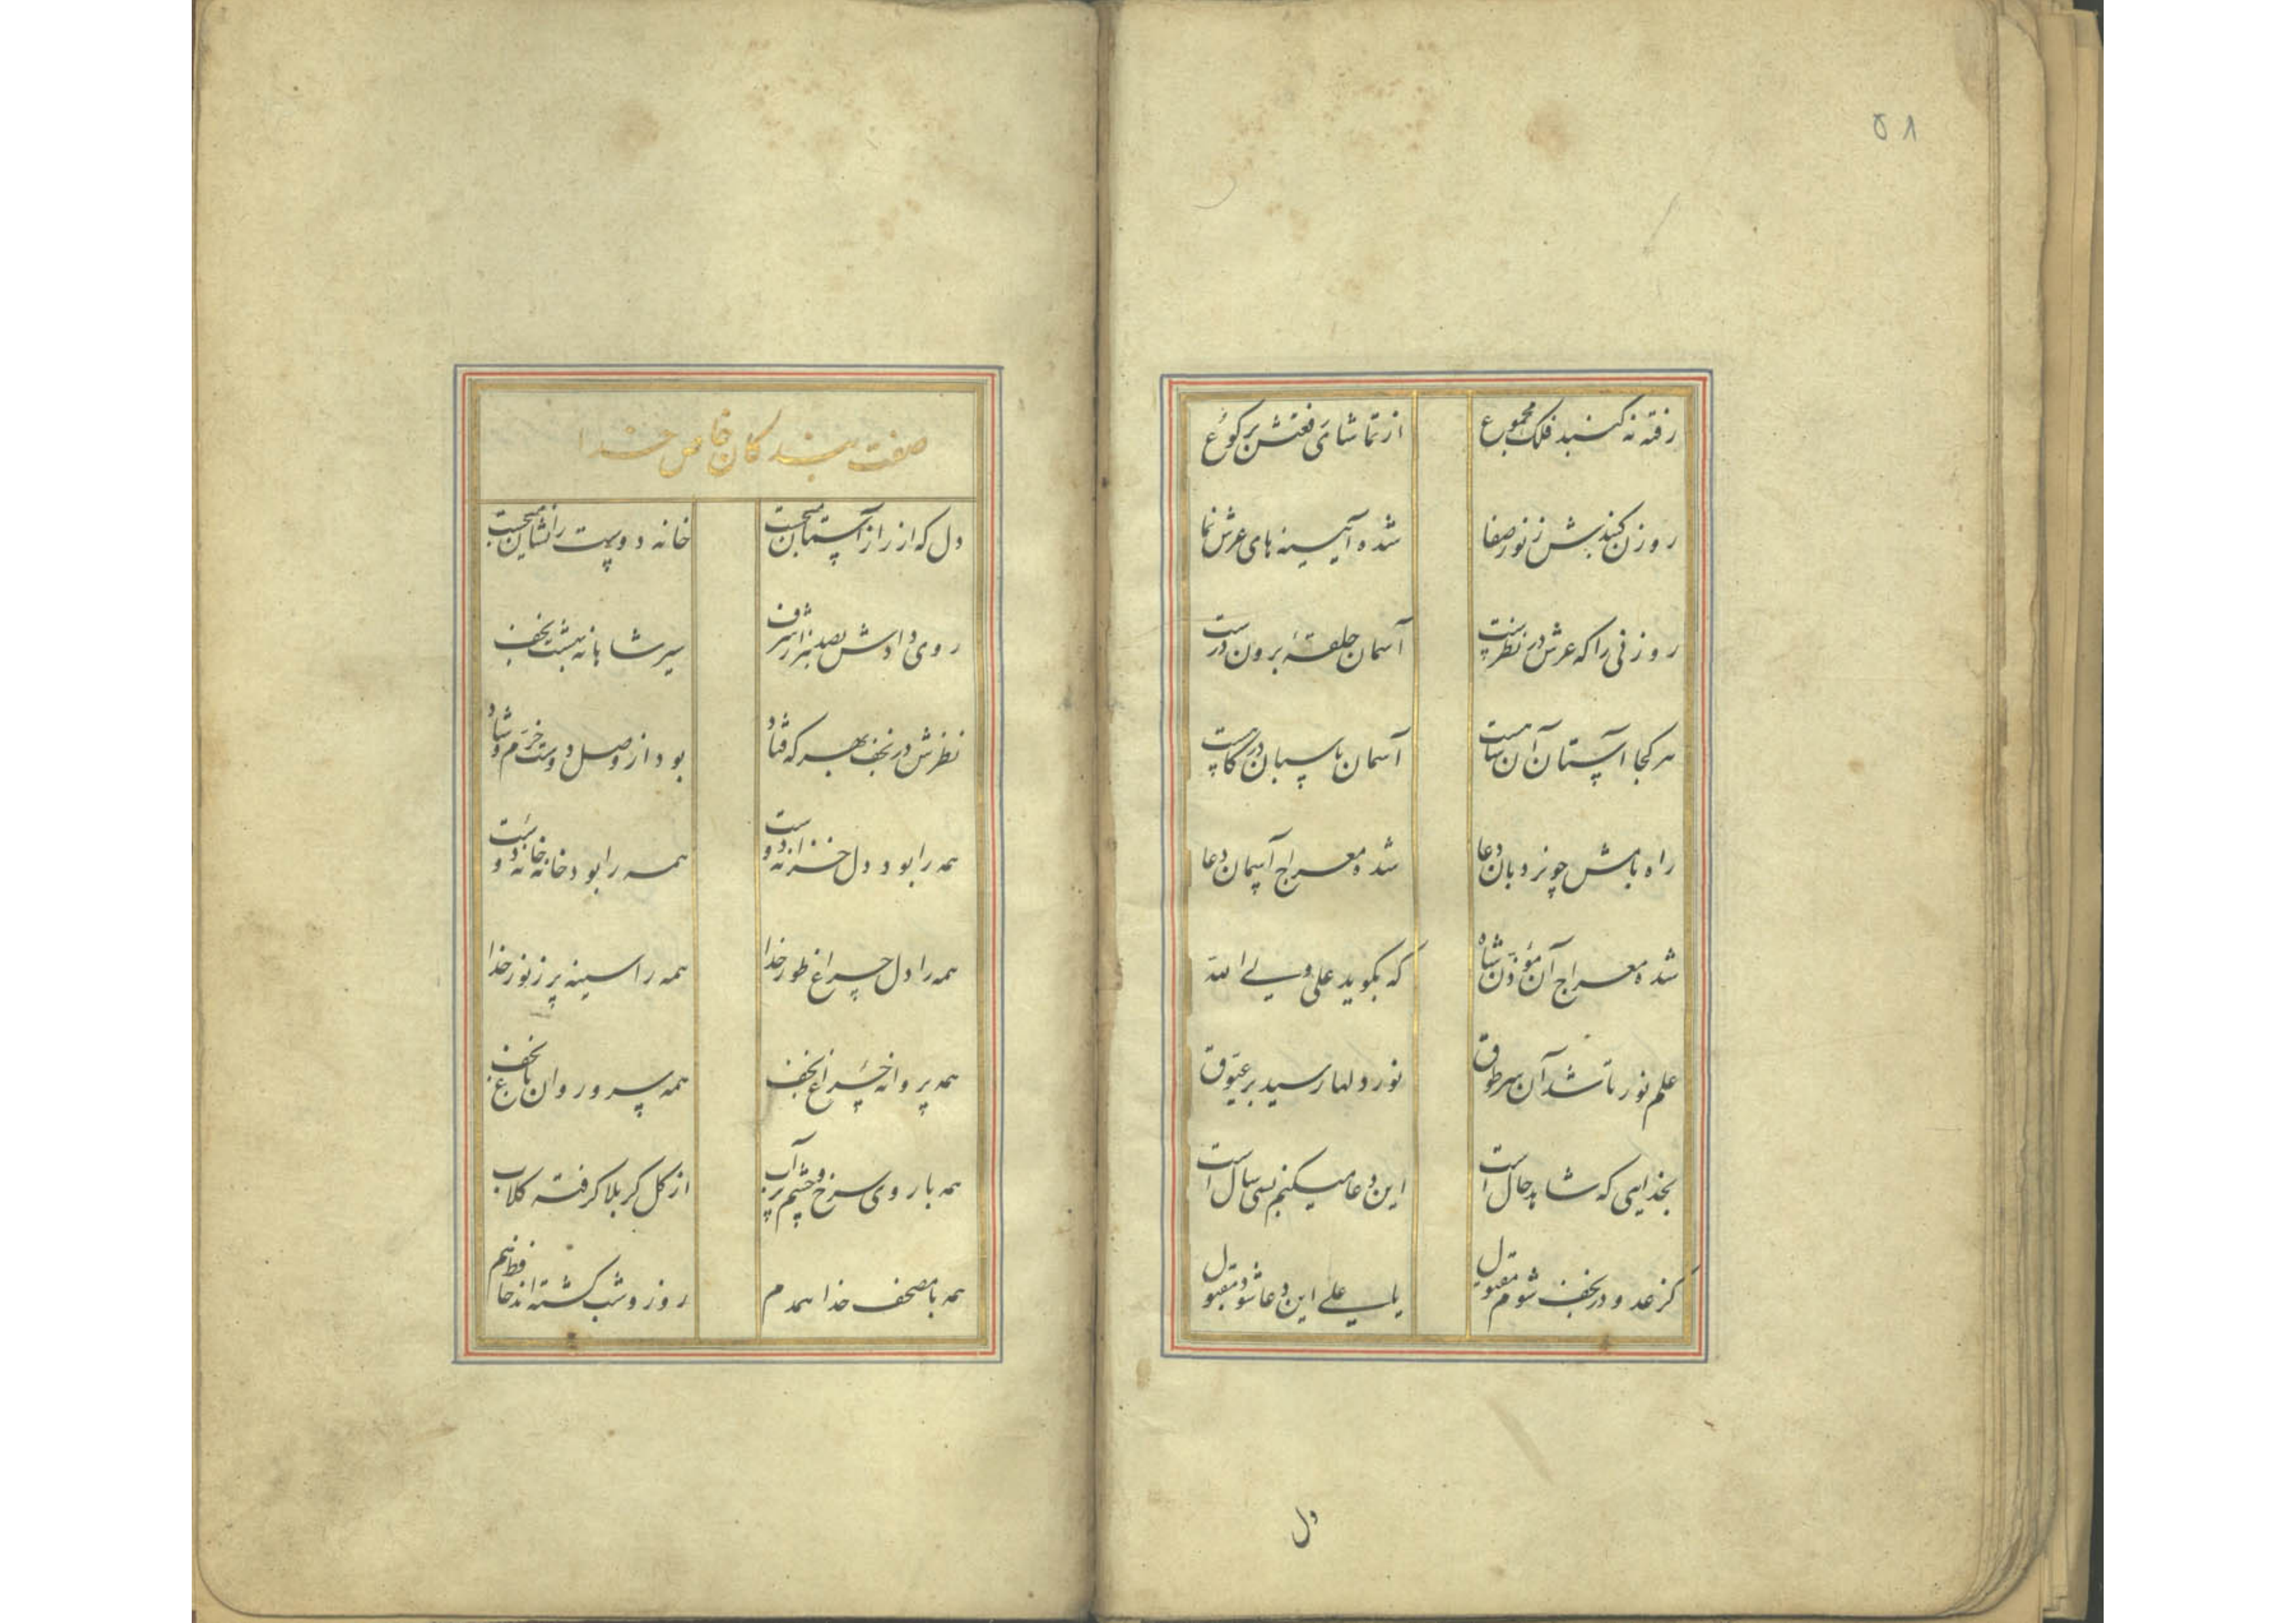 ۵۸
رفته نه کنبد فلک مجموع
از تماشای رفعتش برکوع
روزن کنبدش ز نور صفا
شده آیینه های عرش نما
روزنی را که عرش در نظرست
آسمان حلقهٔ برون درست
هر کجا آستان آن شاهست
آسمان پاسبان درکاهست
راه بامش چو نردبان دعا
شده معراج آسمان دعا
شده معراج آن مؤذن شاه
که بکوید علی ولی الله
علم نور تا شد آن سر طوق
نور دلها رسید بر عیوق
بخدایی که شاهد حال است
این دعا میکنم بسی سال است
کز عدو در نجف شوم مقتول
یا علی این دعا شود مقبول
دل
صفت بندکان خاص خدا
دل که از راز آستان نجست
خانه دوست را نشان نجست
روی دادش بصد هزار شرف
سیر شاهانه بهشت نجف
نظرش در نجف بهر که فتاد
بود از وصل دوست خرّم و شاد
همه را بود دل خزانه دوست
همه را بود خانه خانه دوست
همه را دل چراغ طور خدا
همه را سینه پر ز نور خدا
همه پروانه چراغ نجف
همه سرو روان باغ نجف
همه با روی سرخ و چشم پرآب
از کل کربلا کرفته کلاب
همه با مصحف خدا همدم
روز و شب کشته اند حافظ هم